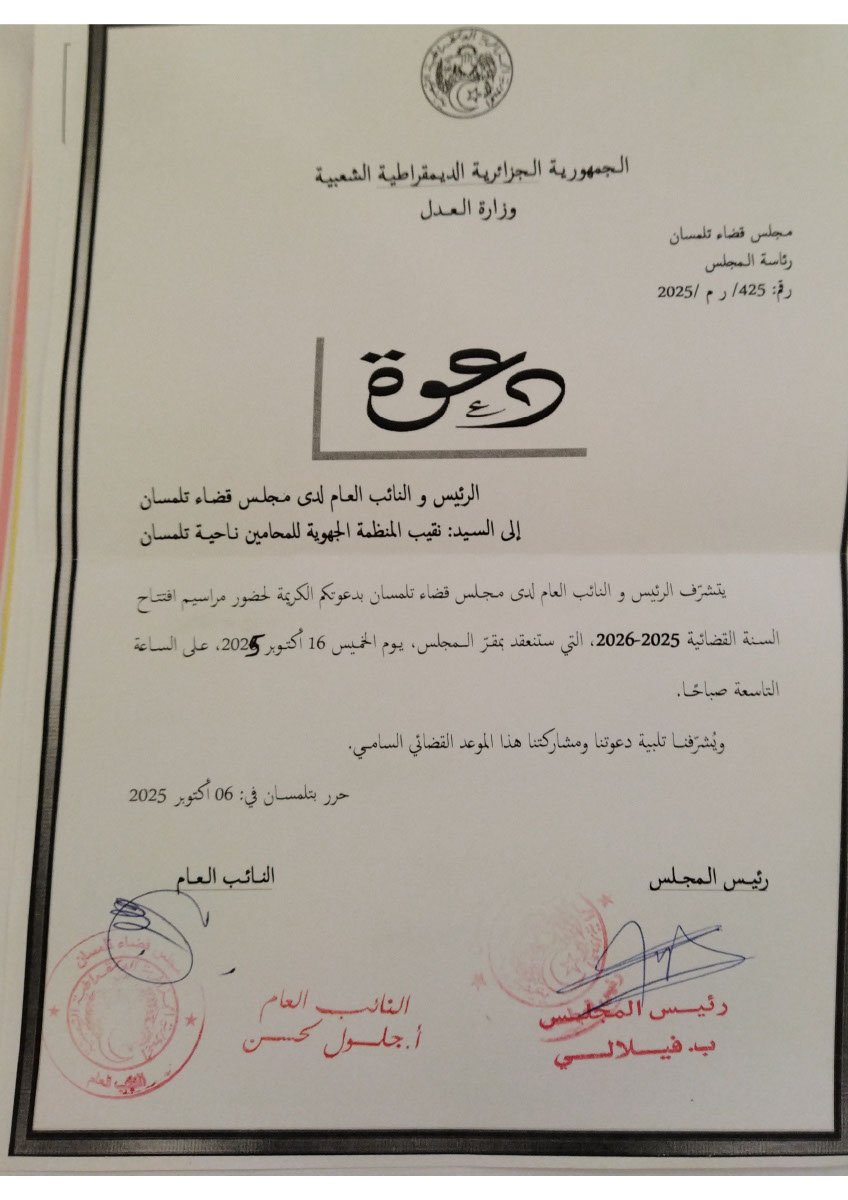 الجمهورية الجزائرية الديمقراطية الشعبية
وزارة العدل
مجلس قضاء تلمسان
رئاسة المجلس
رقم: 425/ ر م /2025
دعوة
الرئيس و النائب العام لدى مجلس قضاء تلمسان
إلى السيد: نقيب المنظمة الجهوية للمحامين ناحية تلمسان
يتشرّف الرئيس و النائب العام لدى مجلس قضاء تلمسان بدعوتكم الكريمة لحضور مراسيم افتتاح
السنة القضائية 2025-2026، التي ستنعقد بمقرّ المجلس، يوم الخميس 16 أكتوبر 2025، على الساعة
التاسعة صباحًا.
ويُشرّفنا تلبية دعوتنا ومشاركتنا هذا الموعد القضائي السامي.
حرر بتلمسان في: 06 أكتوبر 2025
رئيس المجلس
النائب العام
رئيس المجلس
ب. فيلالي
النائب العام
أ. جلول لحسن
مجلس قضاء تلمسان
النائب العام